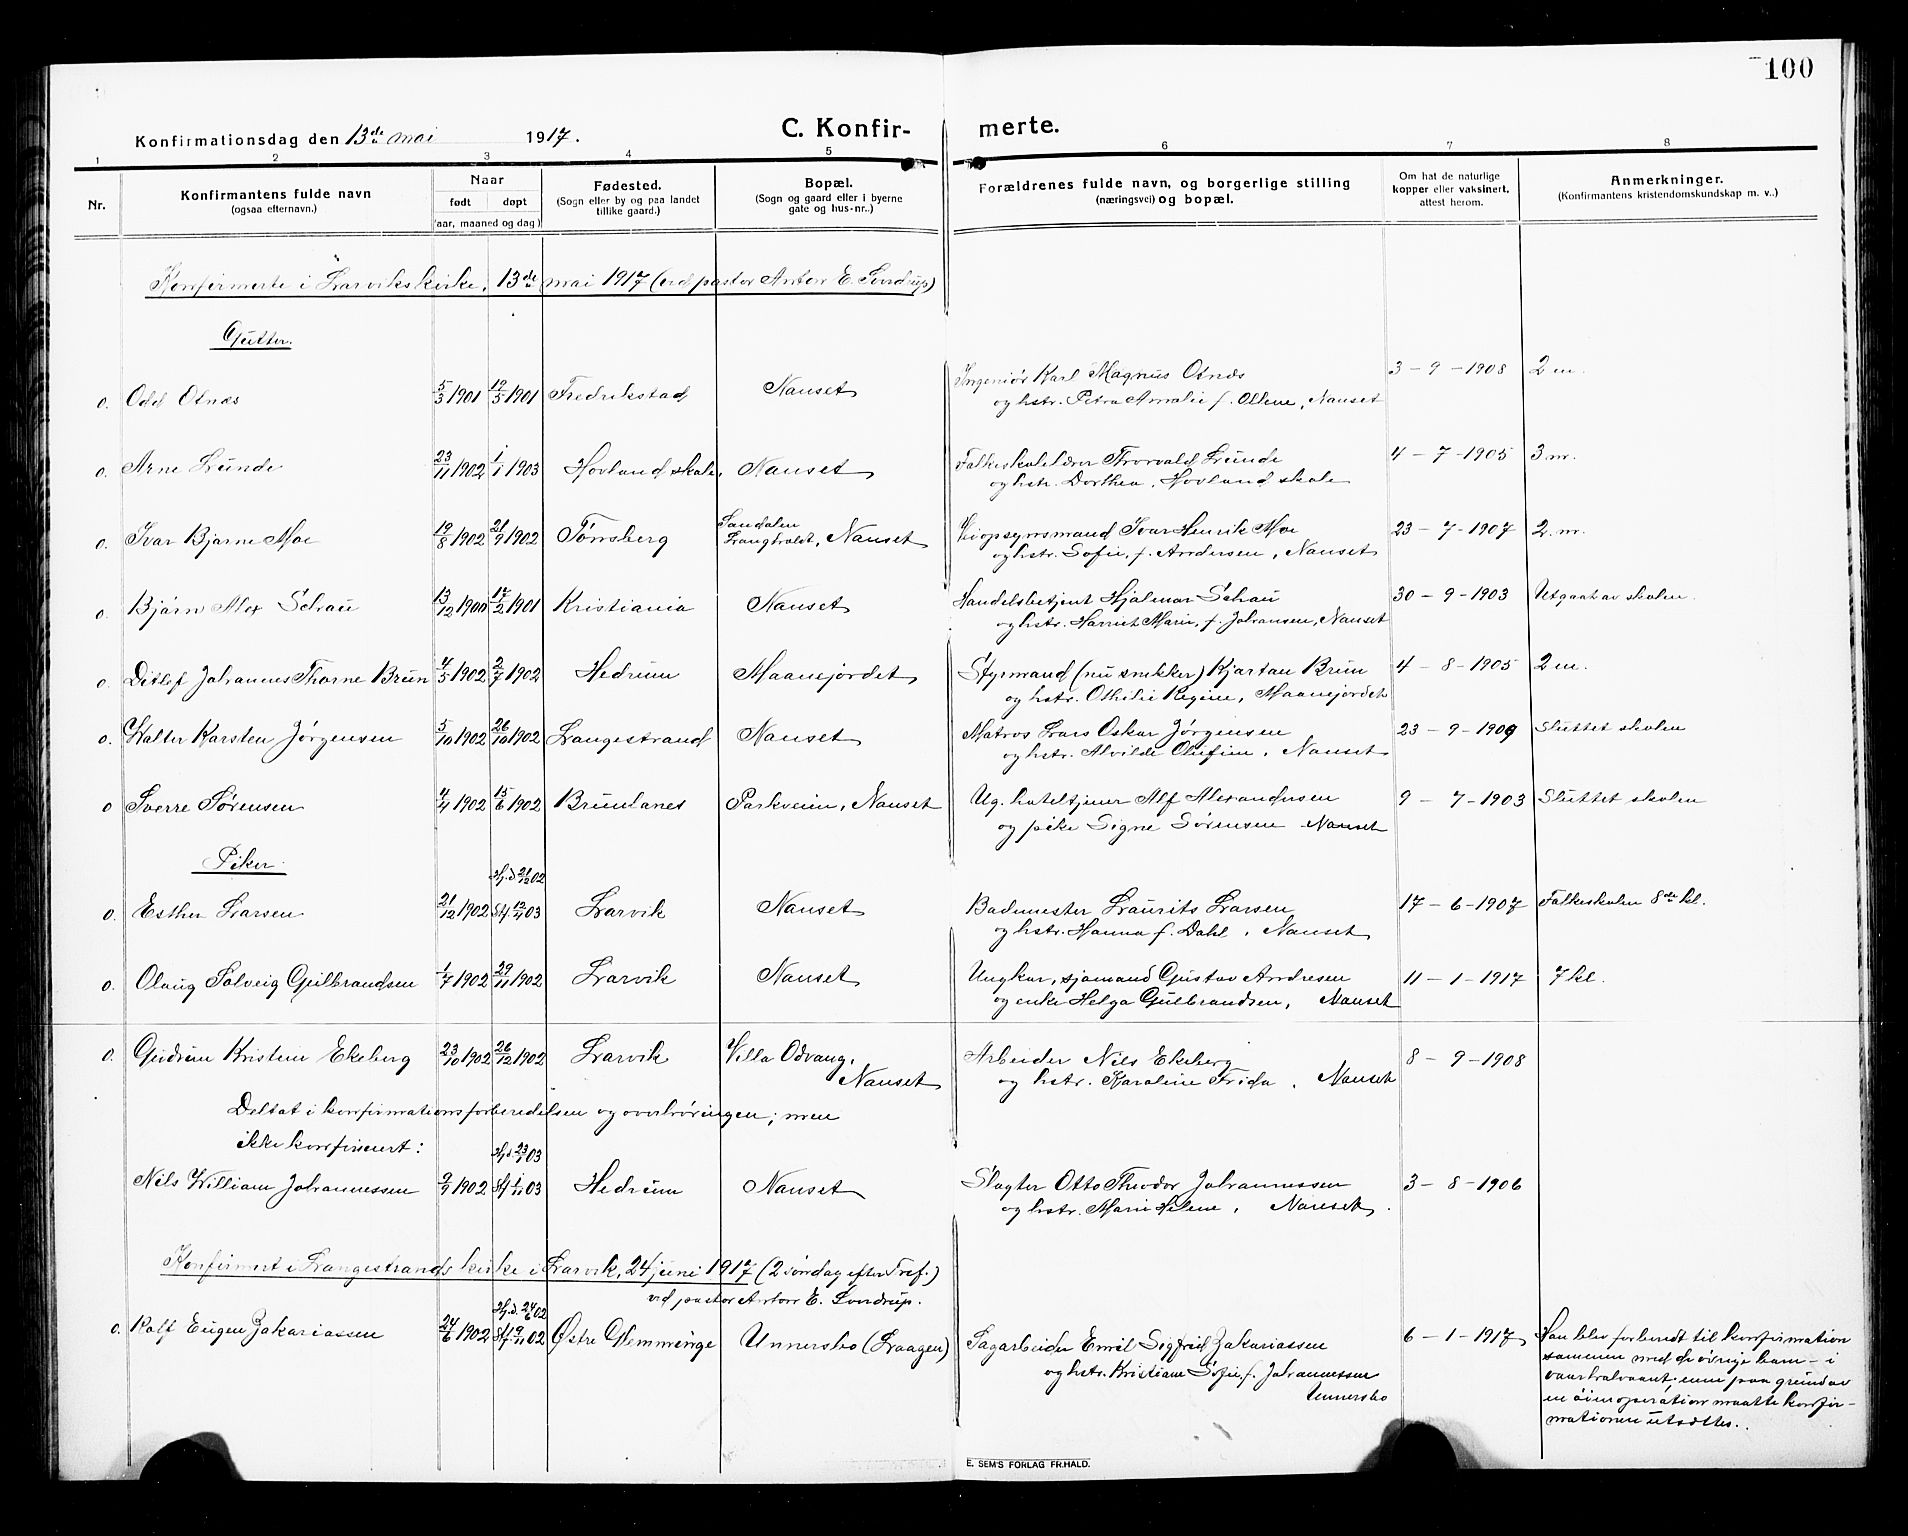 100
Konfirmationsdag den 13de mai 1917.
C. Konfir- merte.
1 2 3 4 5 6 7 8
Nr.
Konfirmantens fulde navn
(ogsaa efternavn.)
Naar
født døpt
(aar, maaned og dag)
Fødested.
(Sogn eller by og paa landet
tillike gaard.)
Bopæl.
(Sogn og gaard eller i byerne
gate og hus-nr..)
Forældrenes fulde navn, og borgerlige stilling
(næringsvei) og bopæl.
Om hat de naturlige
kopper eller vaksinert,
attest herom.
Anmerkninger.
(Konfirmantens kristendomskundskap m. v..)
Konfirmerte i Larvikskirke, 13de mai 1917 (ved pastor Anton E. Sverdrup)
Gutter.
o. Odd Otnæs 5/3 1901 19/5 1901 Fredrikstad Nanset Ingeniør Karl Magnus Otnæs 3-9-1908 2 m.
og hstr. Petra Amalie f. Ottene, Nanset
o. Arne Lunde 23/11 1902 1/1 1903 Hovland skole, Nanset Folkeskolelærer Thorvald Lunde 4-7-1905 3 m.
og hstr. Dorthea, Hovland skole
o. Ivar Bjarne Moe 19/8 1902 21/9 1902 Tønsberg Sandalen Langholdt, Nanset Veiopsynsmand Ivar Henrik Moe 23-7-1907 2. m.
og hstr. Sofie, f. Andersen, Nanset
o. Bjørn Alex Schau 13/12 1900 17/2 1901 Kristiania Nanset Handelsbetjent Hjalmar Schau 30-9-1903 Utgaat av skolen.
og hstr. Harriet Marie, f. Johansen, Nanset
o. Ditlef Johannes Thorne Brun 4/5 1902 2/7 1902 Hedrum Maanejordet Styrmand (nu snekker) Kjartan Brun 4-8-1905 2 m.
og hstr. Othilie Regine, Maanejordet
o. Walter Karsten Jørgensen 5/10 1902 26/10 1902 Langestrand Nanset Matros Lars Oskar Jørgensen 23-9-1909 Sluttet skolen
og hstr. Alvilde Olufine, Nanset
o Sverre Sørensen 4/4 1902 15/6 1902 Brunlanes Parkveien, Nanset Ug. hoteltjener Alf Alexandersen 9-7-1903 Sluttet skolen
og pike Signe Sørensen Nanset
Piker.
Hj. d. 21/12 02
o. Esther Larsen 21/12 1902 Stf. 12/4 03 Larvik Nanset Bademester Laurits Larsen 17-6-1907 Folkeskolen 8de kl.
og hstr. Hanna f. Dahl, Nanset
o. Olaug Solveig Gulbrandsen 1/7 1902 29/11 1902 Larvik Nanset Ungkar, sjømand Gustav Andresen 11-1-1917 7 kl.
og enke Helga Gulbrandsen, Nanset
o. Gudrun Kristine Ekeberg 23/10 1902 26/12 1902 Larvik Villa Odvang, Arbeider Nils Ekeberg 8-9-1908
Nanset og hstr. Karoline Frida, Nanset
Deltat i konfirmationsforberedelsen og overhøringen; men
ikke konfirmert:
Hj. d. 23/1 03
Nils William Johannessen 9/9 1902 Stf. 1/11 03 Hedrum Nanset Slagter Otto Theodor Johannessen 3-8-1906
og hstr. Marie Helene, Nanset.
Konfirmert i Langestrands kirke i Larvik, 24 juni 1917 (2 søndag efter Tref.)
ved pastor Anton E. Sverdrup.
Hj. d. 24/6 02
o. Rolf Eugen Zakariassen 24/6 1902 Stf. 9/11 02 Østre Glemminge Unnersbo (Laagen) Sagarbeider Emil Sigfred Zakariassen 6-1-1917
og hstr. Kristiane Sofie, f. Johannessen
Unnersbo
Han blev forberedt til konfirmation
sammen med de øvrige barn i
vaarhalvaaret men paa grund av
en operation maatte konfir-
mationen utsættes.
E. SEM'S FORLAG FR.HALD.